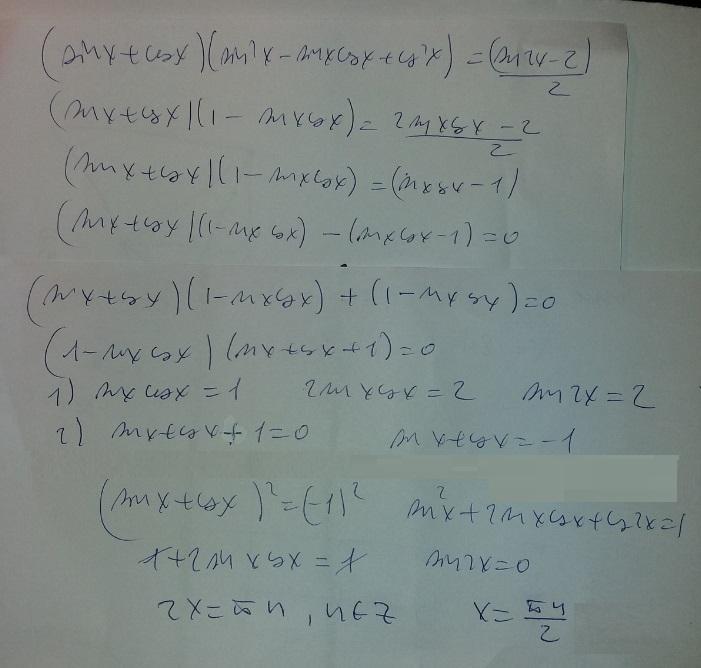 (sinx+cosx)(sin²x-sinxcosx+cos²x) = (sin2x-2)/2
(sinx+cosx)(1-sinxcosx) = (2sinxcosx-2)/2
(sinx+cosx)(1-sinxcosx) = (sinxcosx-1)
(sinx+cosx)(1-sinxcosx) - (sinxcosx-1) = 0
(sinx+cosx)(1-sinxcosx) + (1-sinxcosx) = 0
(1-sinxcosx)(sinx+cosx+1) = 0
1) sinxcosx = 1 2sinxcosx = 2 sin2x = 2
2) sinx+cosx+1=0 sinx+cosx=-1
(sinx+cosx)²=(-1)² sin²x+2sinxcosx+cos²x=1
1+2sinxcosx=1 sin2x=0
2x=πn, n∈Z x=πn/2